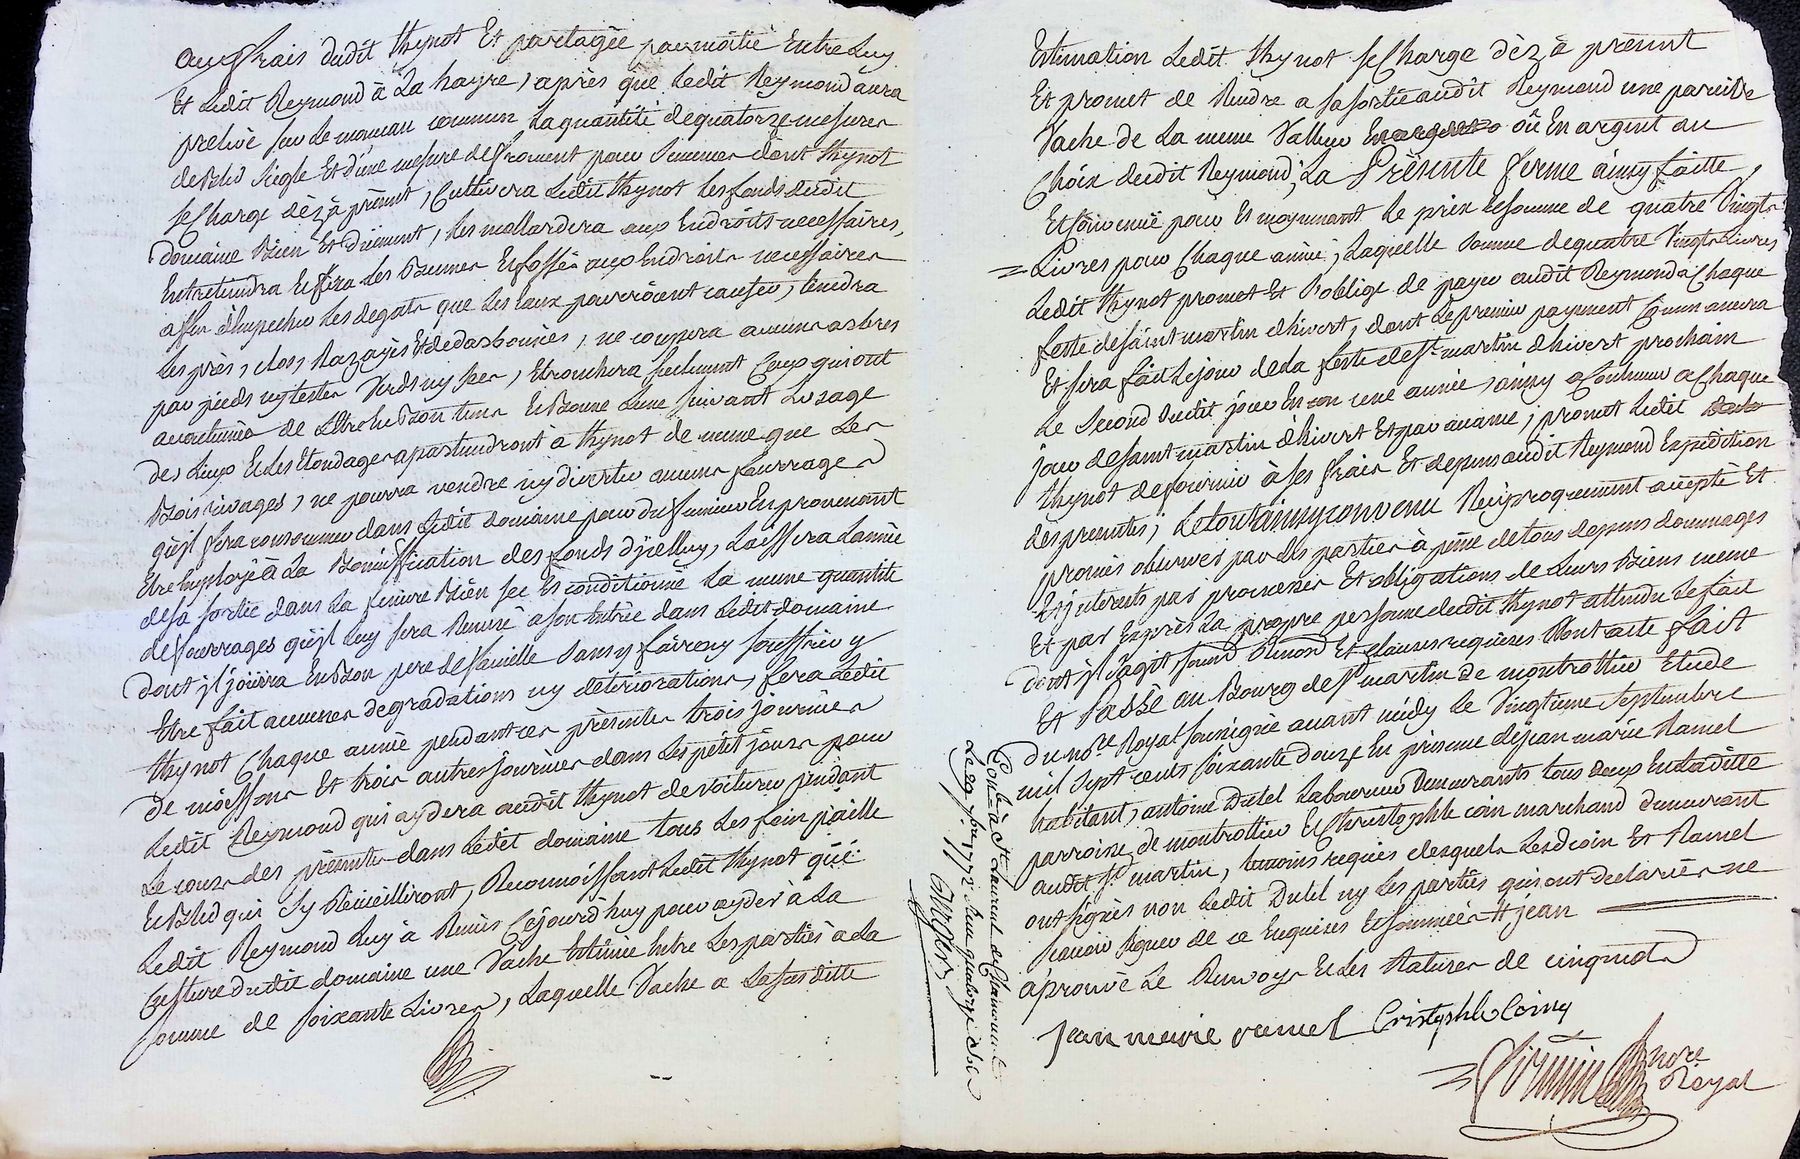 aux frais dudit thynot Et partagée par moitié Entre Luy
Et Ledit Reymond à La hayre, après que Ledit Reymond aura
prelevé sur Le monceau commun La quantité de quatorze mesures
de Bled siegle Et d'une mesure de froment pour semmer dont thynot
se Charge dèz à présent, Cultivera Ledit thynot les fonds dudit
domaine Bien Et düement, Les mollardera aux Endroits necessaires,
Entretiendra Et fera Les Et fossés aux Endroits necessaires
affin d'Empecher Les degats que Les Eaux pourroient causer, tiendra
Les près, clos, Et de , ne coupera aucuns arbres
par pieds ny testes Verds ny secs, Ebranchera seulement Ceux qui ont
accoutumés de L'Etre En Bon tems Et Bonne Lune suivant L'usage
des Lieux Et Les Etondages apartiendront à thynot de meme que Les
Bois , ne pourra vendre ny divertir aucuns fourrages
qu'jl fera consommer dans Ledit domaine pour du fumier En provenant
Etre Employé à La Bonniffication des fonds d'jcelluy, Laissera L'année
de sa sortie dans La feniere Bien sec Et conditionné La meme quantité
de fourrages qu'jl Luy sera Remise a son Entrée dans Ledit domaine
dont jl joüira En Bon pere de famille sans y faire ny souffrir y
Etre fait aucunes degradations ny deteriorations, fera Ledit
thynot Chaque année pendant ces présentes trois journées
de moissons Et trois autres journées dans Les pétit jours pour
Ledit Reymond qui aydera audit thynot de voiturer pendant
Le cours des présentes dans Ledit domaine tous Les foin paille
Et Bled qui sy Réceüilliront, Reconnoissant Ledit thynot qué
Ledit Reymond Luy à Remis Cejourd'huy pour ayder à La
Culture dudit domaine une Vache Estimée Entre Les parties à La
somme de soixante Livres, Laquelle Vache a La susditte
Estimation Ledit thynot se Charge dèz à présent
Et promet de Rendre a sa sortie audit Reymond une pareille
Vache de La meme Valleur où En argent au
Choix dudit Reymond; La Présente ferme ainsy faitte,
Et Convenüe pour Et moyennant Le prix Et somme de quatre Vingts
Livres pour Chaque année; Laquelle somme de quatre Vingts Livres
Ledit thynot promet Et s'oblige de payer audit Reymond à Chaque
feste de saint martin d'hivert, dont Le premier payement
Et sera fait Le jour de La feste de St martin d'hivert prochain
Le second dudit jour En une année, ainsy a Continuer a Chaque
jour de saint martin d'hivert Et par avance; promet Ledit
thynot de fournir à ses frais Et depens audit Reymond Expédition
des presentes; Le tout ainsy convenu Reciproquement accepté Et
promis observer par Les parties à peine de tous depens dommages
Et jnterests par promesses Et obligations de Leurs Biens meme
Et par Exprès La propre personne dudit thynot attendu Le fait
dont jl s'agit soums Renon Et clauses requises dont acte fait
Et Passé au Bourg de St martin de montrottier Etude
du nore Royal soussigné avant midy Le Vingtieme septembre
mil sept cents soixante douze En presence de jean marie Ramel
habitant, antoine Dutel Laboureur Demeurants tous deux En Laditte
parroisse de montrottier Et Christophle coin marchand demeurant
audit St martin, temoins requis desquels Lesd coin Et Ramel
ont signés non Ledit Dutel ny Les parties qui ont declarées ne
scavoir signer de ce Enquises Et sommées # jean
àprouvé Le Renvoys Et Les Ratures de cinq mots
jean marie ramel Cristophle Coing
nore
Royal
Conlé à St Laurent de Chamousset
Le 29 7bre 1772 Reçu quatorze sols